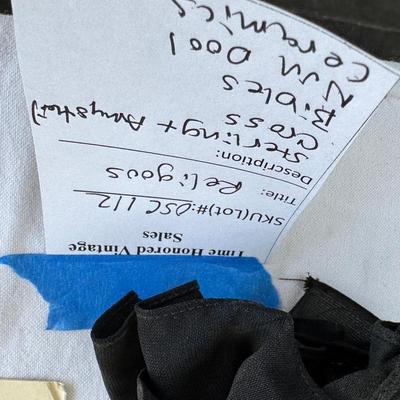 Time Honored Vintage
Sales
SKU(Lot)#: OSC 112
Title: Religous
Description:
Sterling + Amysthest
Cross
Bibles
Nun Dool
Ceramics